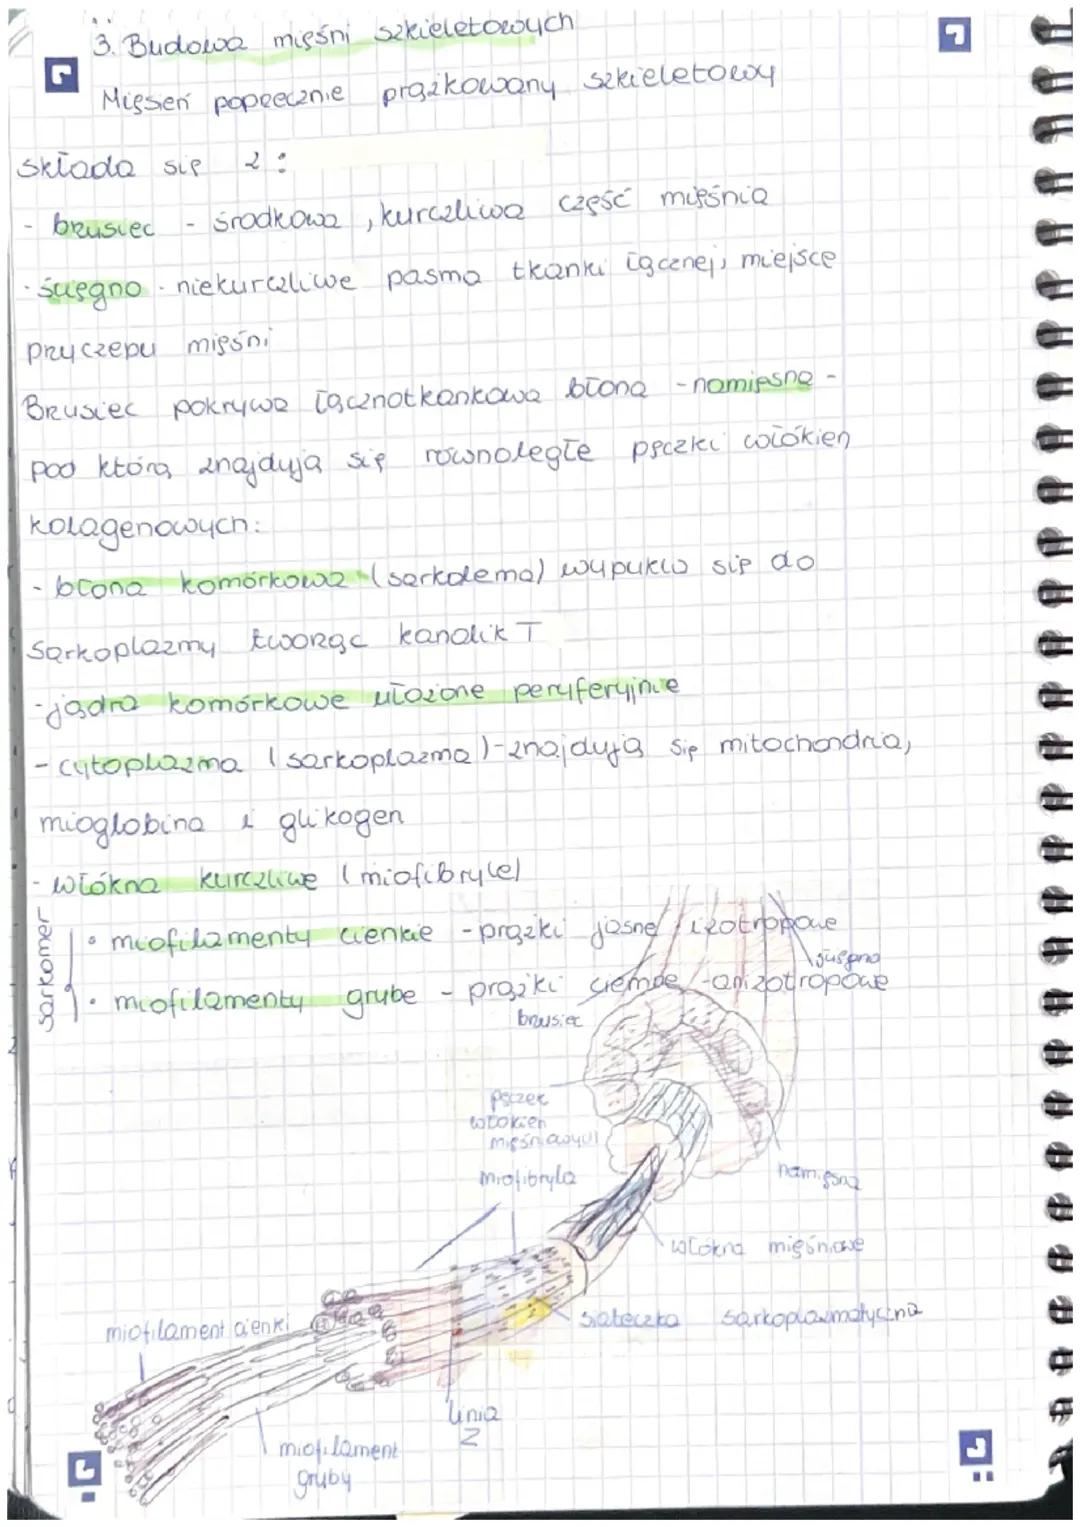 3. Budowa mięśni szkieletowych
Mięsień poprzecznie prążkowany szkieletowy
składa się z:
- brzusiec - środkowa, kurczliwa część mięśnia
- ścięgno - niekurczliwe pasma tkanki łącznej, miejsce
przyczepu mięśni
Brzusiec pokrywa łącznotkankowa błona - namięsna -
pod którą znajdują się równoległe pęczki włókien
kolagenowych:
- błona komórkowa (sarkolema) wypukla się do
sarkoplazmy tworząc kanalik T
- jądra komórkowe ułożone peryferyjnie
- cytoplazma (sarkoplazma) - znajdują się mitochondria,
mioglobina i glikogen
- włókna kurczliwe (miofibryle)
sarkomer
• miofilamenty cienkie - prążki jasne izotropowe
• miofilamenty grube - prążki ciemne - anizotropowe
ścięgno
brzusiec
pęczek
włókien
mięśniowych
miofibryla
namięsna
włókna mięśniowe
siateczka sarkoplazmatyczna
miofilament cienki
linia
Z
miofilament
gruby